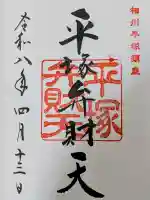 相州平塚須賀
平塚弁財天
平塚
弁財天
令和八年四月十三日